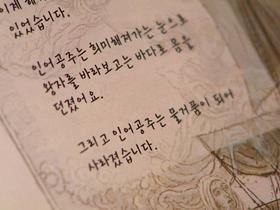 이제
있었습니다.
인어공주는 희미해져가는 눈으로
왕자를 바라보고는 바다로 몸을
던졌어요.
그리고 인어공주는 물거품이 되어
사라졌습니다.